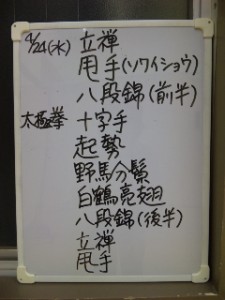 4/24(水) 立禅
甩手(ソワイショウ)
八段錦(前半)
太極拳 十字手
起勢
野馬分鬃
白鶴亮翅
八段錦(後半)
立禅
甩手